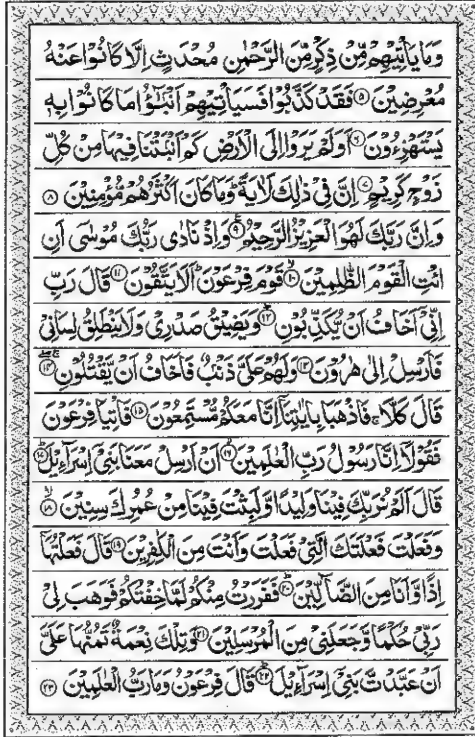 وَمَا يَأْتِيهِمْ مِّنْ ذِكْرٍ مِّنَ الرَّحْمٰنِ مُحْدَثٍ اِلَّا كَانُوْا عَنْهُ
مُعْرِضِيْنَ ۝۵ فَقَدْ كَذَّبُوْا فَسَيَأْتِيْهِمْ اَنْۢبٰٓؤُا مَا كَانُوْا بِهٖ
يَسْتَهْزِءُوْنَ ۝۶ اَوَلَمْ يَرَوْا اِلَى الْاَرْضِ كَمْ اَنْۢبَتْنَا فِيْهَا مِنْ كُلِّ
زَوْجٍ كَرِيْمٍ ۝۷ اِنَّ فِيْ ذٰلِكَ لَاٰيَةً ؕ وَمَا كَانَ اَكْثَرُهُمْ مُّؤْمِنِيْنَ ۝۸
وَاِنَّ رَبَّكَ لَهُوَ الْعَزِيْزُ الرَّحِيْمُ ۝۹ وَاِذْ نَادٰى رَبُّكَ مُوْسٰٓى اَنِ
ائْتِ الْقَوْمَ الظّٰلِمِيْنَ ۝۱۰ قَوْمَ فِرْعَوْنَ ؕ اَلَا يَتَّقُوْنَ ۝۱۱ قَالَ رَبِّ
اِنِّيْٓ اَخَافُ اَنْ يُّكَذِّبُوْنِ ۝۱۲ وَيَضِيْقُ صَدْرِيْ وَلَا يَنْطَلِقُ لِسَانِيْ
فَاَرْسِلْ اِلٰى هٰرُوْنَ ۝۱۳ وَلَهُمْ عَلَيَّ ذَنْۢبٌ فَاَخَافُ اَنْ يَّقْتُلُوْنِ ۝۱۴
قَالَ كَلَّا ۚ فَاذْهَبَا بِاٰيٰتِنَآ اِنَّا مَعَكُمْ مُّسْتَمِعُوْنَ ۝۱۵ فَاْتِيَا فِرْعَوْنَ
فَقُوْلَآ اِنَّا رَسُوْلُ رَبِّ الْعٰلَمِيْنَ ۝۱۶ اَنْ اَرْسِلْ مَعَنَا بَنِيْٓ اِسْرَآءِيْلَ ۝۱۷
قَالَ اَلَمْ نُرَبِّكَ فِيْنَا وَلِيْدًا وَّلَبِثْتَ فِيْنَا مِنْ عُمُرِكَ سِنِيْنَ ۝۱۸
وَفَعَلْتَ فَعْلَتَكَ الَّتِيْ فَعَلْتَ وَاَنْتَ مِنَ الْكٰفِرِيْنَ ۝۱۹ قَالَ فَعَلْتُهَآ
اِذًا وَّاَنَا مِنَ الضَّآلِّيْنَ ۝۲۰ فَفَرَرْتُ مِنْكُمْ لَمَّا خِفْتُكُمْ فَوَهَبَ لِيْ
رَبِّيْ حُكْمًا وَّجَعَلَنِيْ مِنَ الْمُرْسَلِيْنَ ۝۲۱ وَتِلْكَ نِعْمَةٌ تَمُنُّهَا عَلَيَّ
اَنْ عَبَّدْتَّ بَنِيْٓ اِسْرَآءِيْلَ ۝۲۲ قَالَ فِرْعَوْنُ وَمَا رَبُّ الْعٰلَمِيْنَ ۝۲۳